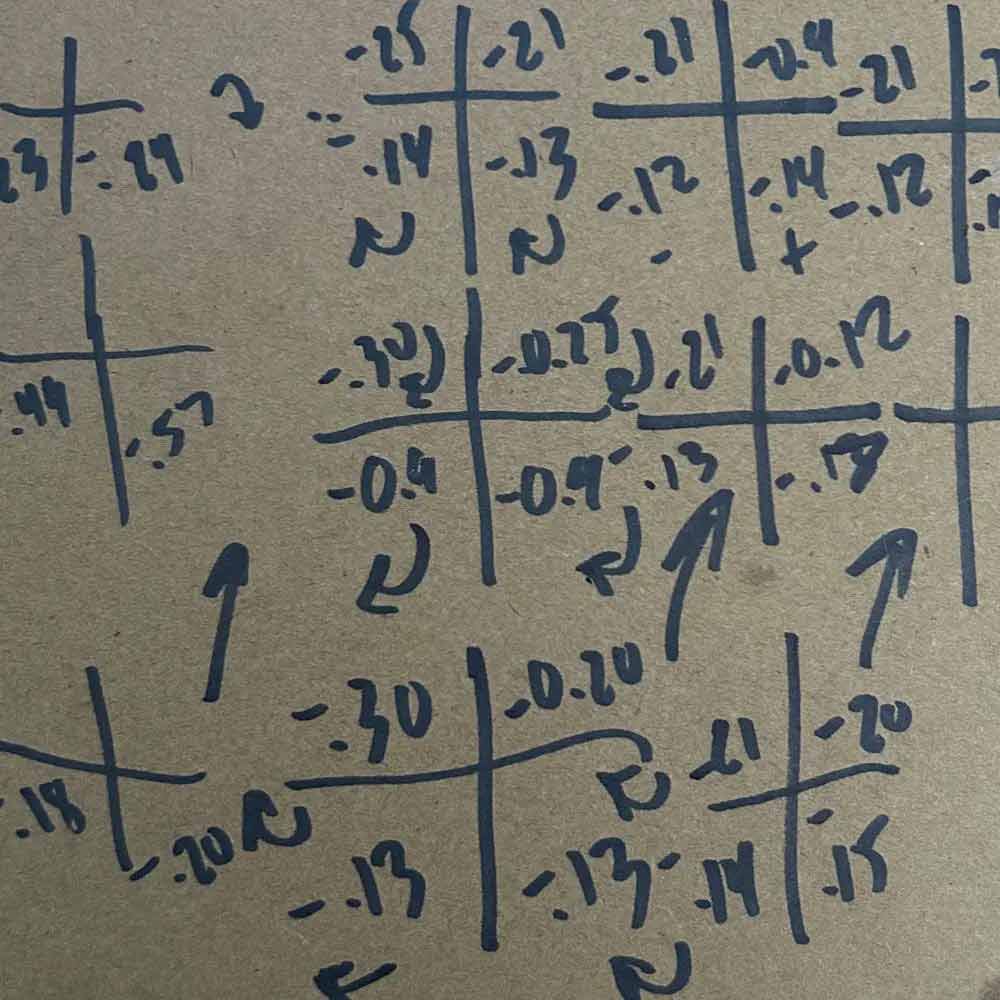 -25 -21 -.21 -0.4 -21
23 -.29 -.14 -.13 -.12 -.14 -.12
- +
-.30 -0.25 .21 -0.12
.44 -.57 -0.4 -0.4 -.13 -.18
-.30 -0.20 .21 -20
.18 -.20 -.13 -.13 -.14 -.15